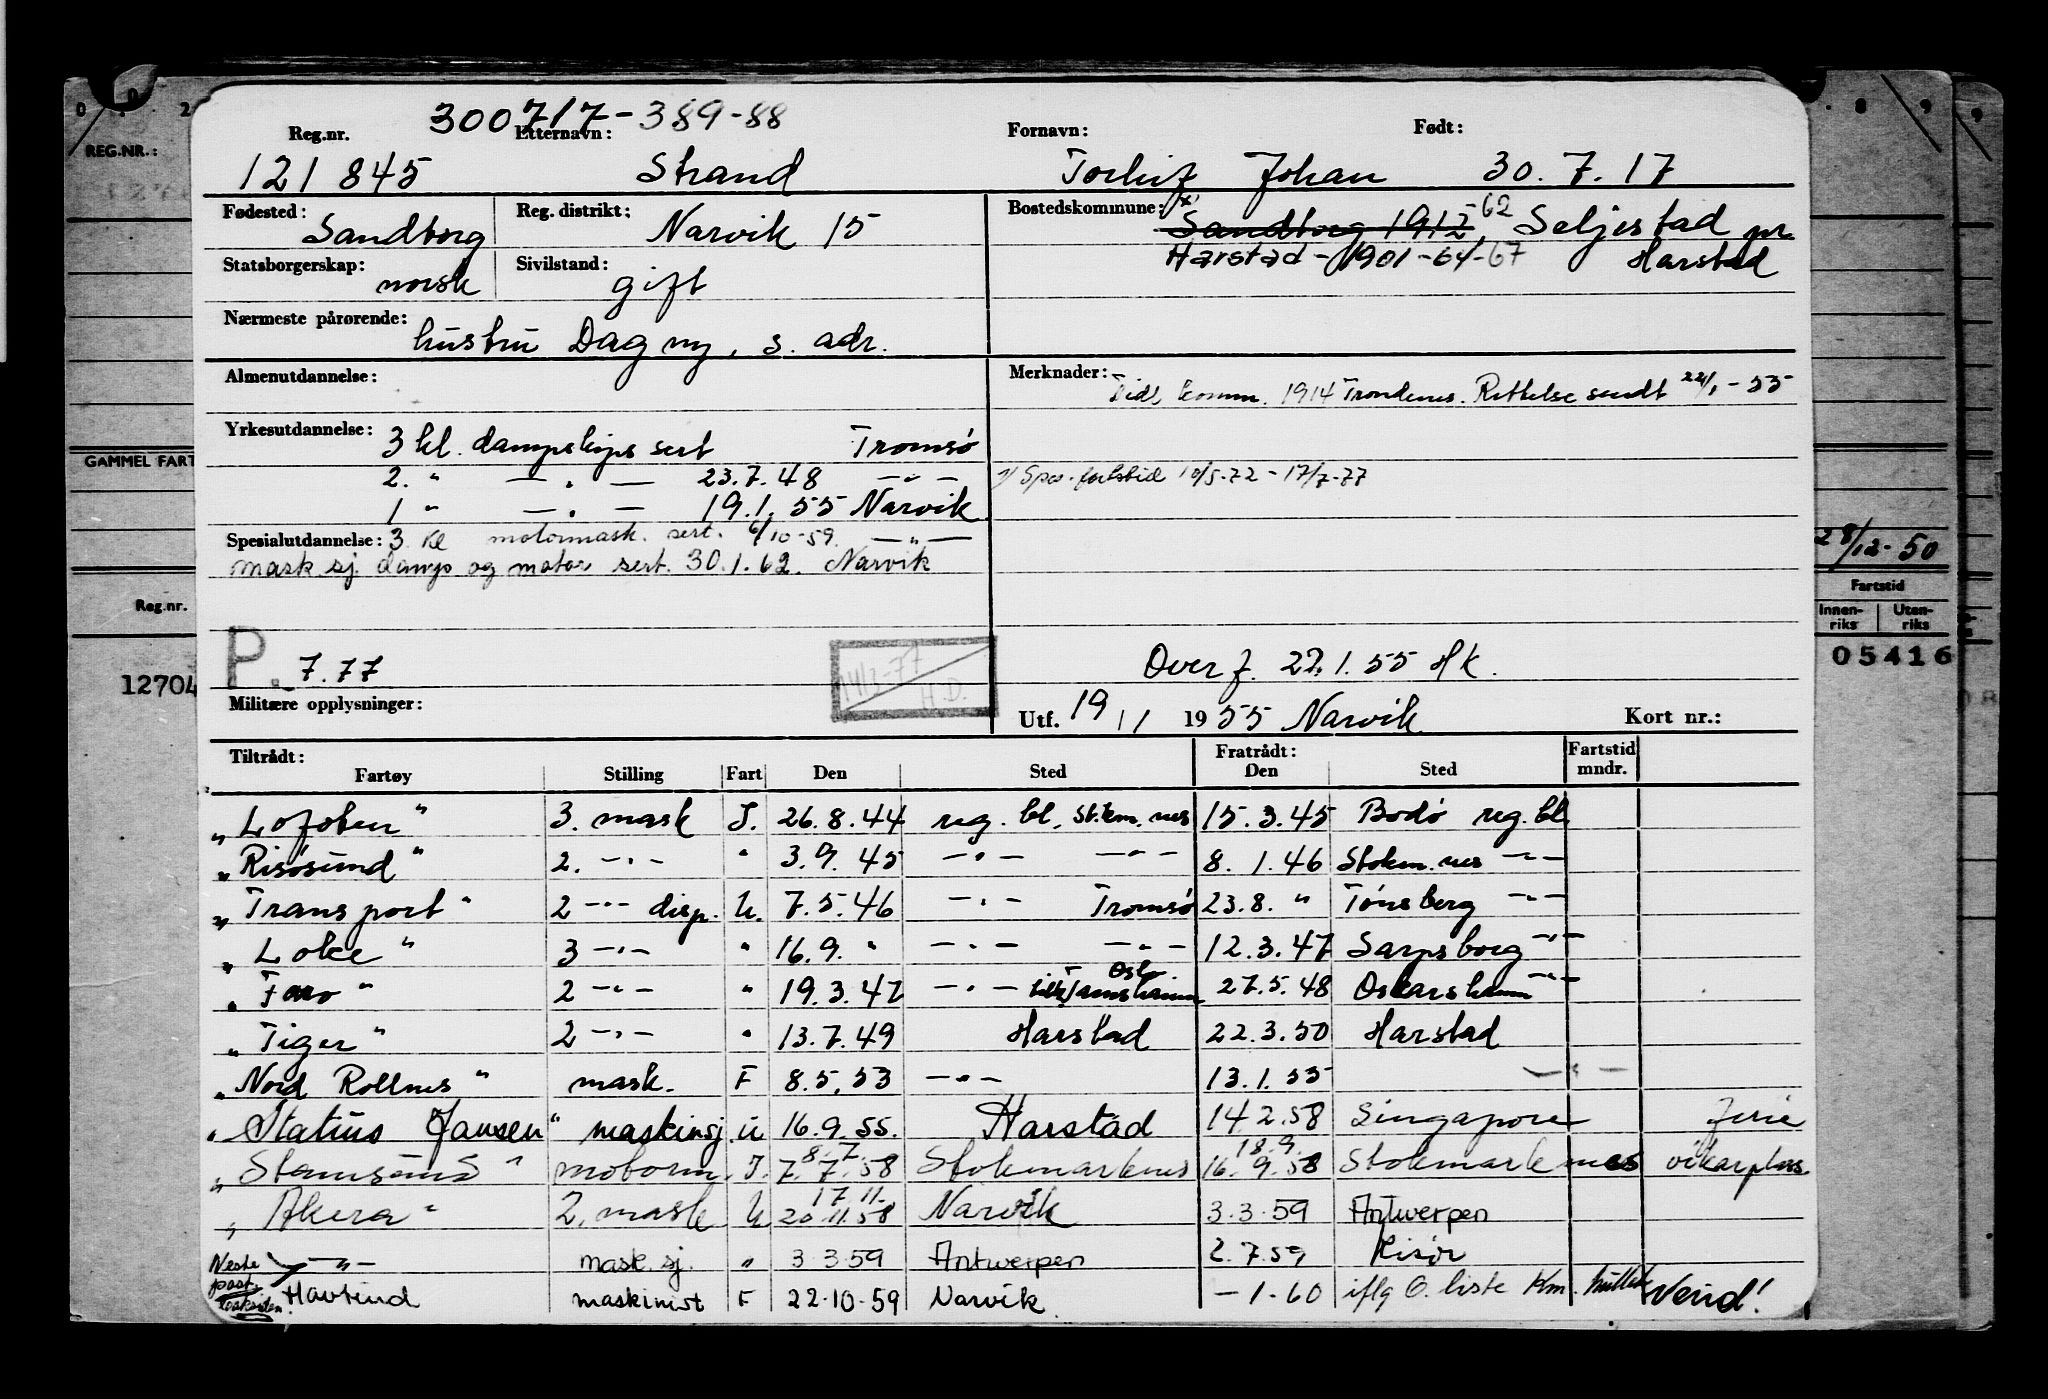 300717-389-88
Reg.nr. Etternavn: Fornavn: Født:
121 845 Strand Torleif Johan 30. 7. 17
Fødested: Sandtorg Reg. distrikt: Narvik 15 Bostedskommune: x) Sandtorg 1912 -62 Seljestad pr
Harstad - 1901 - 64 - 67 Harstad
Statsborgerskap: norsk Sivilstand: gift
Nærmeste pårørende: hustru Dagny, s. adr.
Almenutdannelse: Merknader: Tidl. komm. 1914 Trondenes. Rettelse sendt 22/1 - 55
Yrkesutdannelse: 3 kl. dampskips sert Tromsø
2. " — " — 23.7.48 — " — Spes. fartstid 10/5-72 - 17/7-77
1 " — " — 19.1.55 Narvik
Spesialutdannelse: 3. kl motormask. sert. 6/10-59. — " —
mask.sj. damp og motor sert. 30.1.62. Narvik
P. 7.77 14/3-77 H.D. Overf. 22.1.55 Hk.
Militære opplysninger: Utf. 19/1 1955 Narvik Kort nr.:
Tiltrådt: Fratrådt: Fartstid
Fartøy Stilling Fart Den Sted Den Sted mndr.
"Lofoten" 3. mask I. 26.8.44 reg. bl. Stokm.nes 15.3.45 Bodø reg. bl
"Risøsund" 2. — " — " 3.9.45 — " — — " — 8.1.46 Stokm.nes — " —
"Transport" 2 — " — disp. U. 7.5.46 — " — Tromsø 23.8. " Tønsberg — " —
"Loke" 3 — " — " 16.9. " — " — — " — 12.3.47 Sarpsborg — " —
"Faro" 2 — " — " 19.3.47 — " — Oslo 27.5.48 Oskarshamn — " —
"Tiger" 2 — " — " 13.7.49 Harstad 22.3.50 Harstad
"Nord Rollnes" mask. F 8.5.53 — " — 13.1.55 — " —
"Statius Jansen" maskinsj. U 16.9.55. Harstad 14.2.58 Singapore ferie
"Stamsund" motorm. I. 8.7. 7.7.58 Stokmarknes 18.9. 16.9.58 Stokmarknes vikarplass.
"Akera" 2. mask U 17.11. 20.11.58 Narvik 3.3.59 Antwerpen
— " — mask.sj. " 3.3.59 Antwerpen 2.7.59 Risør
Neste post
Havtind maskinist F 22.10.59 Narvik — 1.60 iflg O. liste Km. Vend!
0 0 2
REG.NR.:
GAMMEL FART
Reg.nr.
12704
8 9 9
28/12-50
Fartstid
Innen-riks Uten-riks
05416